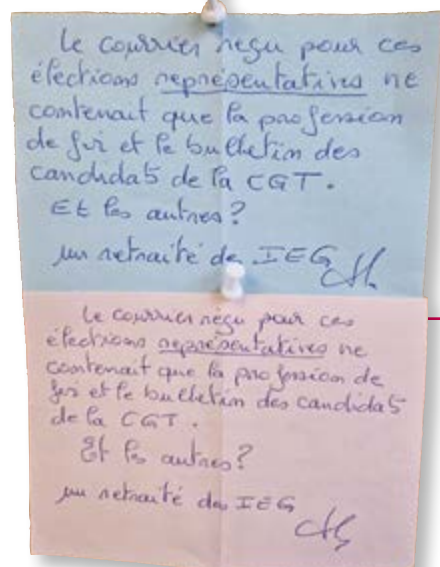 Le courrier reçu pour ces
élections représentatives ne
contenait que la profession
de foi et le bulletin des
candidats de la CGT.
Et les autres ?
un retraité des IEG
Le courrier reçu pour ces
élections représentatives ne
contenait que la profession de
foi et le bulletin des candidats
de la CGT.
Et les autres ?
un retraité des IEG